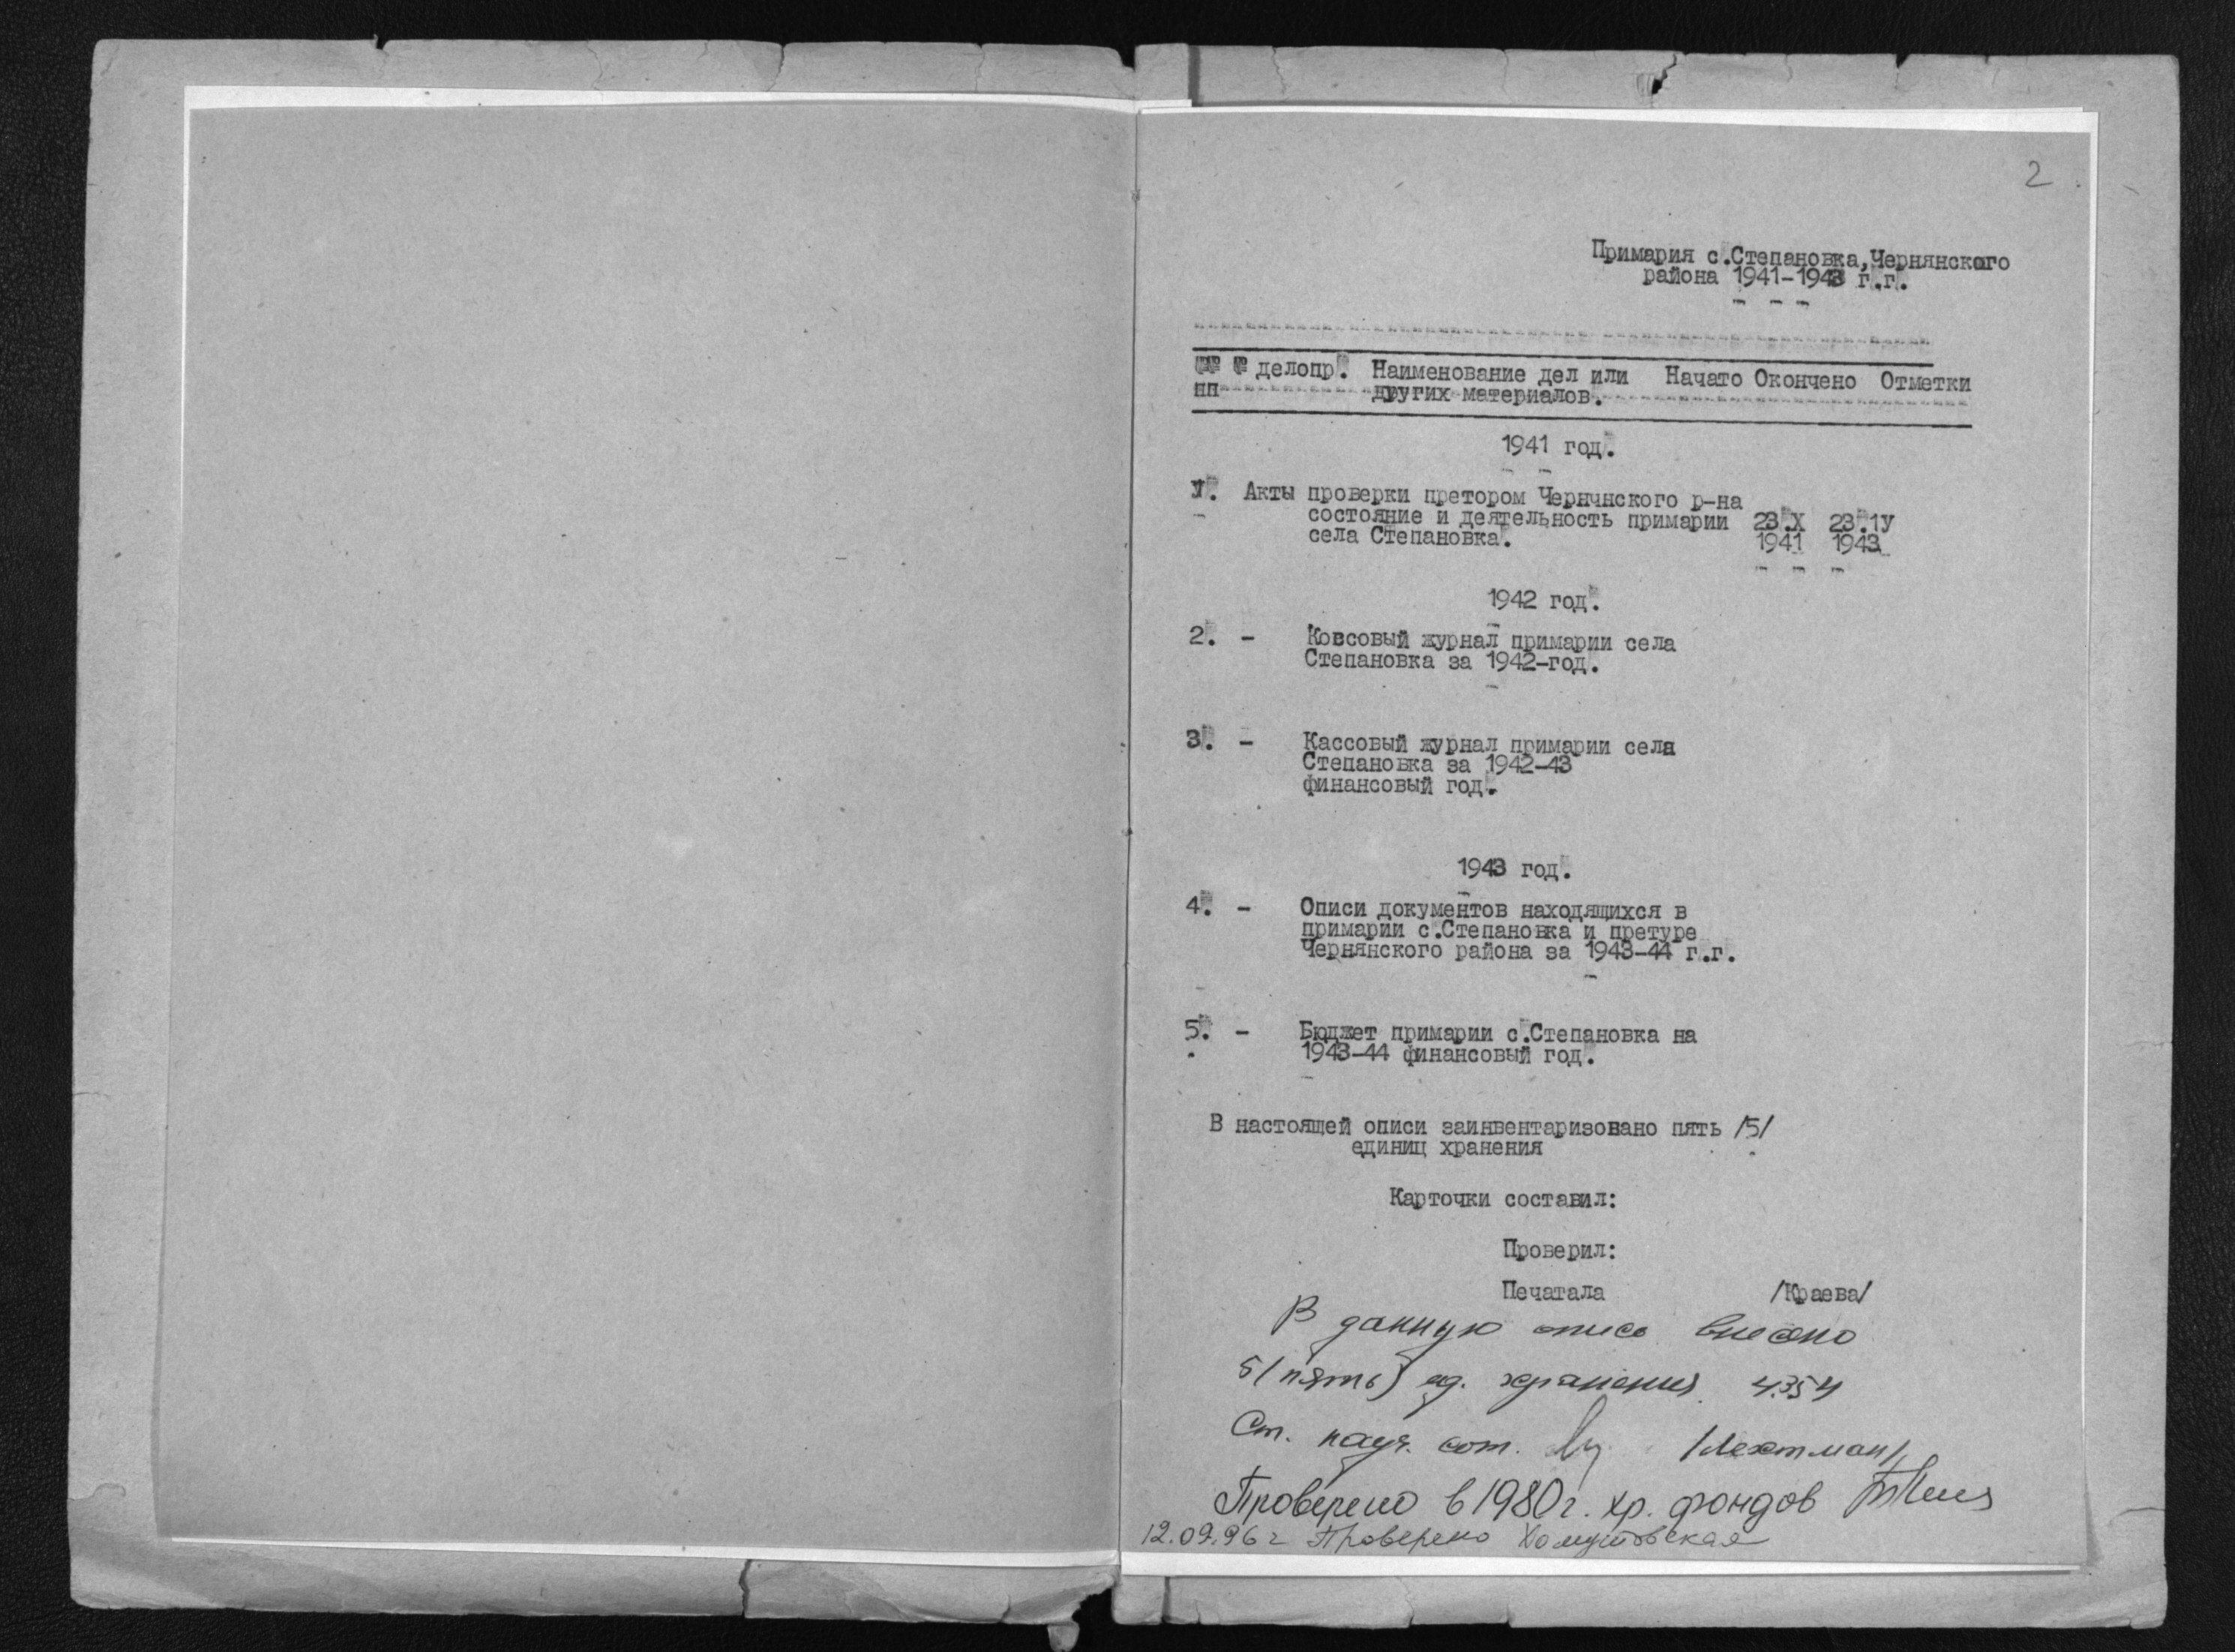 2
Примария с.Степановка,Чернянского
района 1941-1943 г.г.
№№ № делопр. Наименование дел или Начато Окончено Отметки
пп других материалов.
1941 год.
1. Акты проверки претором Чернчнского р-на
состояние и деятельность примарии 23.X 23.1У
села Степановка. 1941 1943
1942 год.
2. - Ковсовый журнал примарии села
Степановка за 1942-год.
3. - Кассовый журнал примарии села
Степановка за 1942-43
финансовый год.
1943 год.
4. - Описи документов находящихся в
примарии с.Степановка и претуре
Чернянского района за 1943-44 г.г.
5. - Бюджет примарии с.Степановка на
1943-44 финансовый год.
В настоящей описи заинвентаризовано пять /5/
единиц хранения
Карточки составил:
Проверил:
Печатала /Краева/
В данную опись внесено
5 (пять) ед. хранения
Ст. науч. сот. /Лехтман/
Проверено в 1980 г. хр. фондов
12.09.96 г Проверено Хомутовская